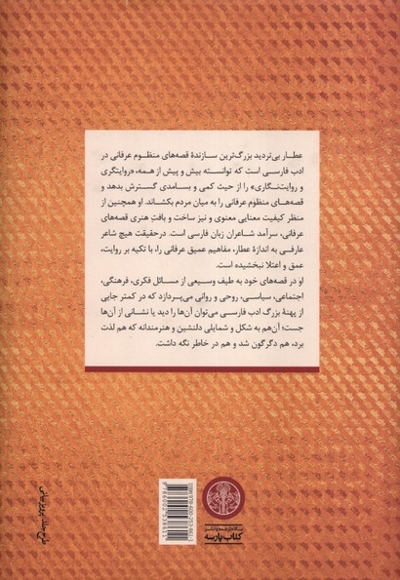 عطار بی‌تردید بزرگ‌ترین سازندهٔ قصه‌های منظوم عرفانی در
ادب فارسی است که توانسته بیش و پیش از همه، «روایتگری
و روایت‌نگاری» را از حیث کمی و بسامدی گسترش بدهد و
قصه‌های منظوم عرفانی را به میان مردم بکشاند. او همچنین از
منظر کیفیت معنایی معنوی و نیز ساخت و بافتِ هنری قصه‌های
عرفانی، سرآمد شاعران زبان فارسی است. درحقیقت هیچ شاعر
عارفی به اندازهٔ عطار، مفاهیم عمیق عرفانی را، با تکیه بر روایت،
عمق و اعتلا نبخشیده است.
او در قصه‌های خود به طیف وسیعی از مسائل فکری، فرهنگی،
اجتماعی، سیاسی، روحی و روانی می‌پردازد که در کمتر جایی
از پهنهٔ بزرگ ادب فارسی می‌توان آن‌ها را دید یا نشانی از آن‌ها
جست؛ آن‌هم به شکل و شمایلی دلنشین و هنرمندانه که هم لذت
برد، هم دگرگون شد و هم در خاطر نگه داشت.
کتاب پارسه